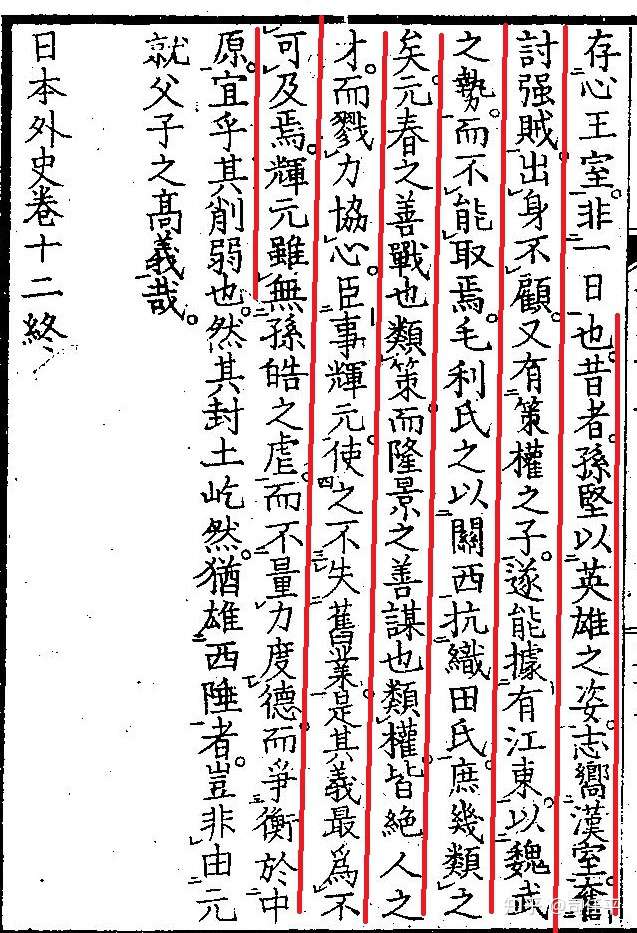 存心王室。非一日也。昔者孫堅以英雄之姿。志嚮漢室。奮
討强賊。出身不顧。又有策權之子。遂能據有江東。以魏武
之勢。而不能取焉。毛利氏之以關西抗織田氏。庶幾類之
矣。元春之善戰也類策。而隆景之善謀也類權。皆絶人之
才。而戮力協心。臣事輝元。使之不失舊業。是其義最爲不
可及焉。輝元雖無孫皓之虐。而不量力度德。而爭衡於中
原。宜乎其削弱也。然其封土屹然。猶雄西陲者。豈非由元
就父子之高義哉。
日本外史卷十二終